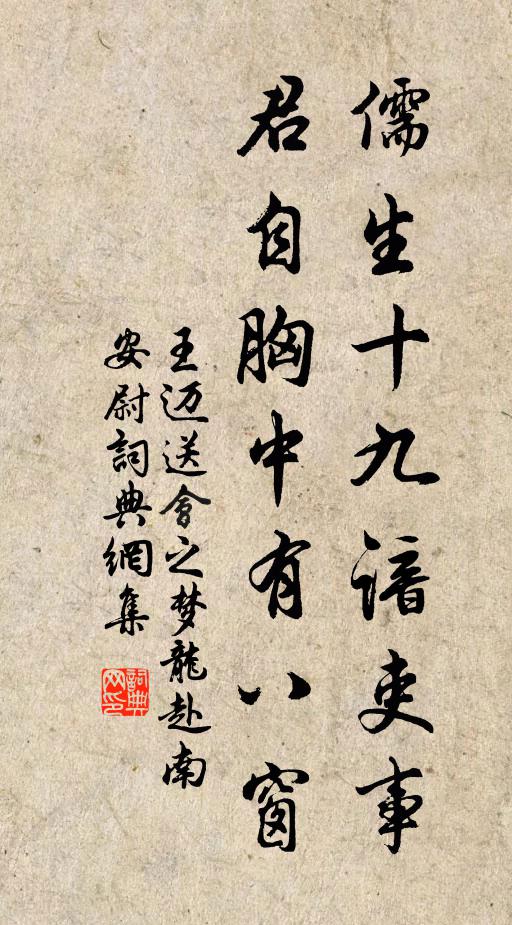 儒生十九諳吏事
君自胸中有八窗
王迈送會之梦龍赴南
安尉詞典網集
詞典
网印